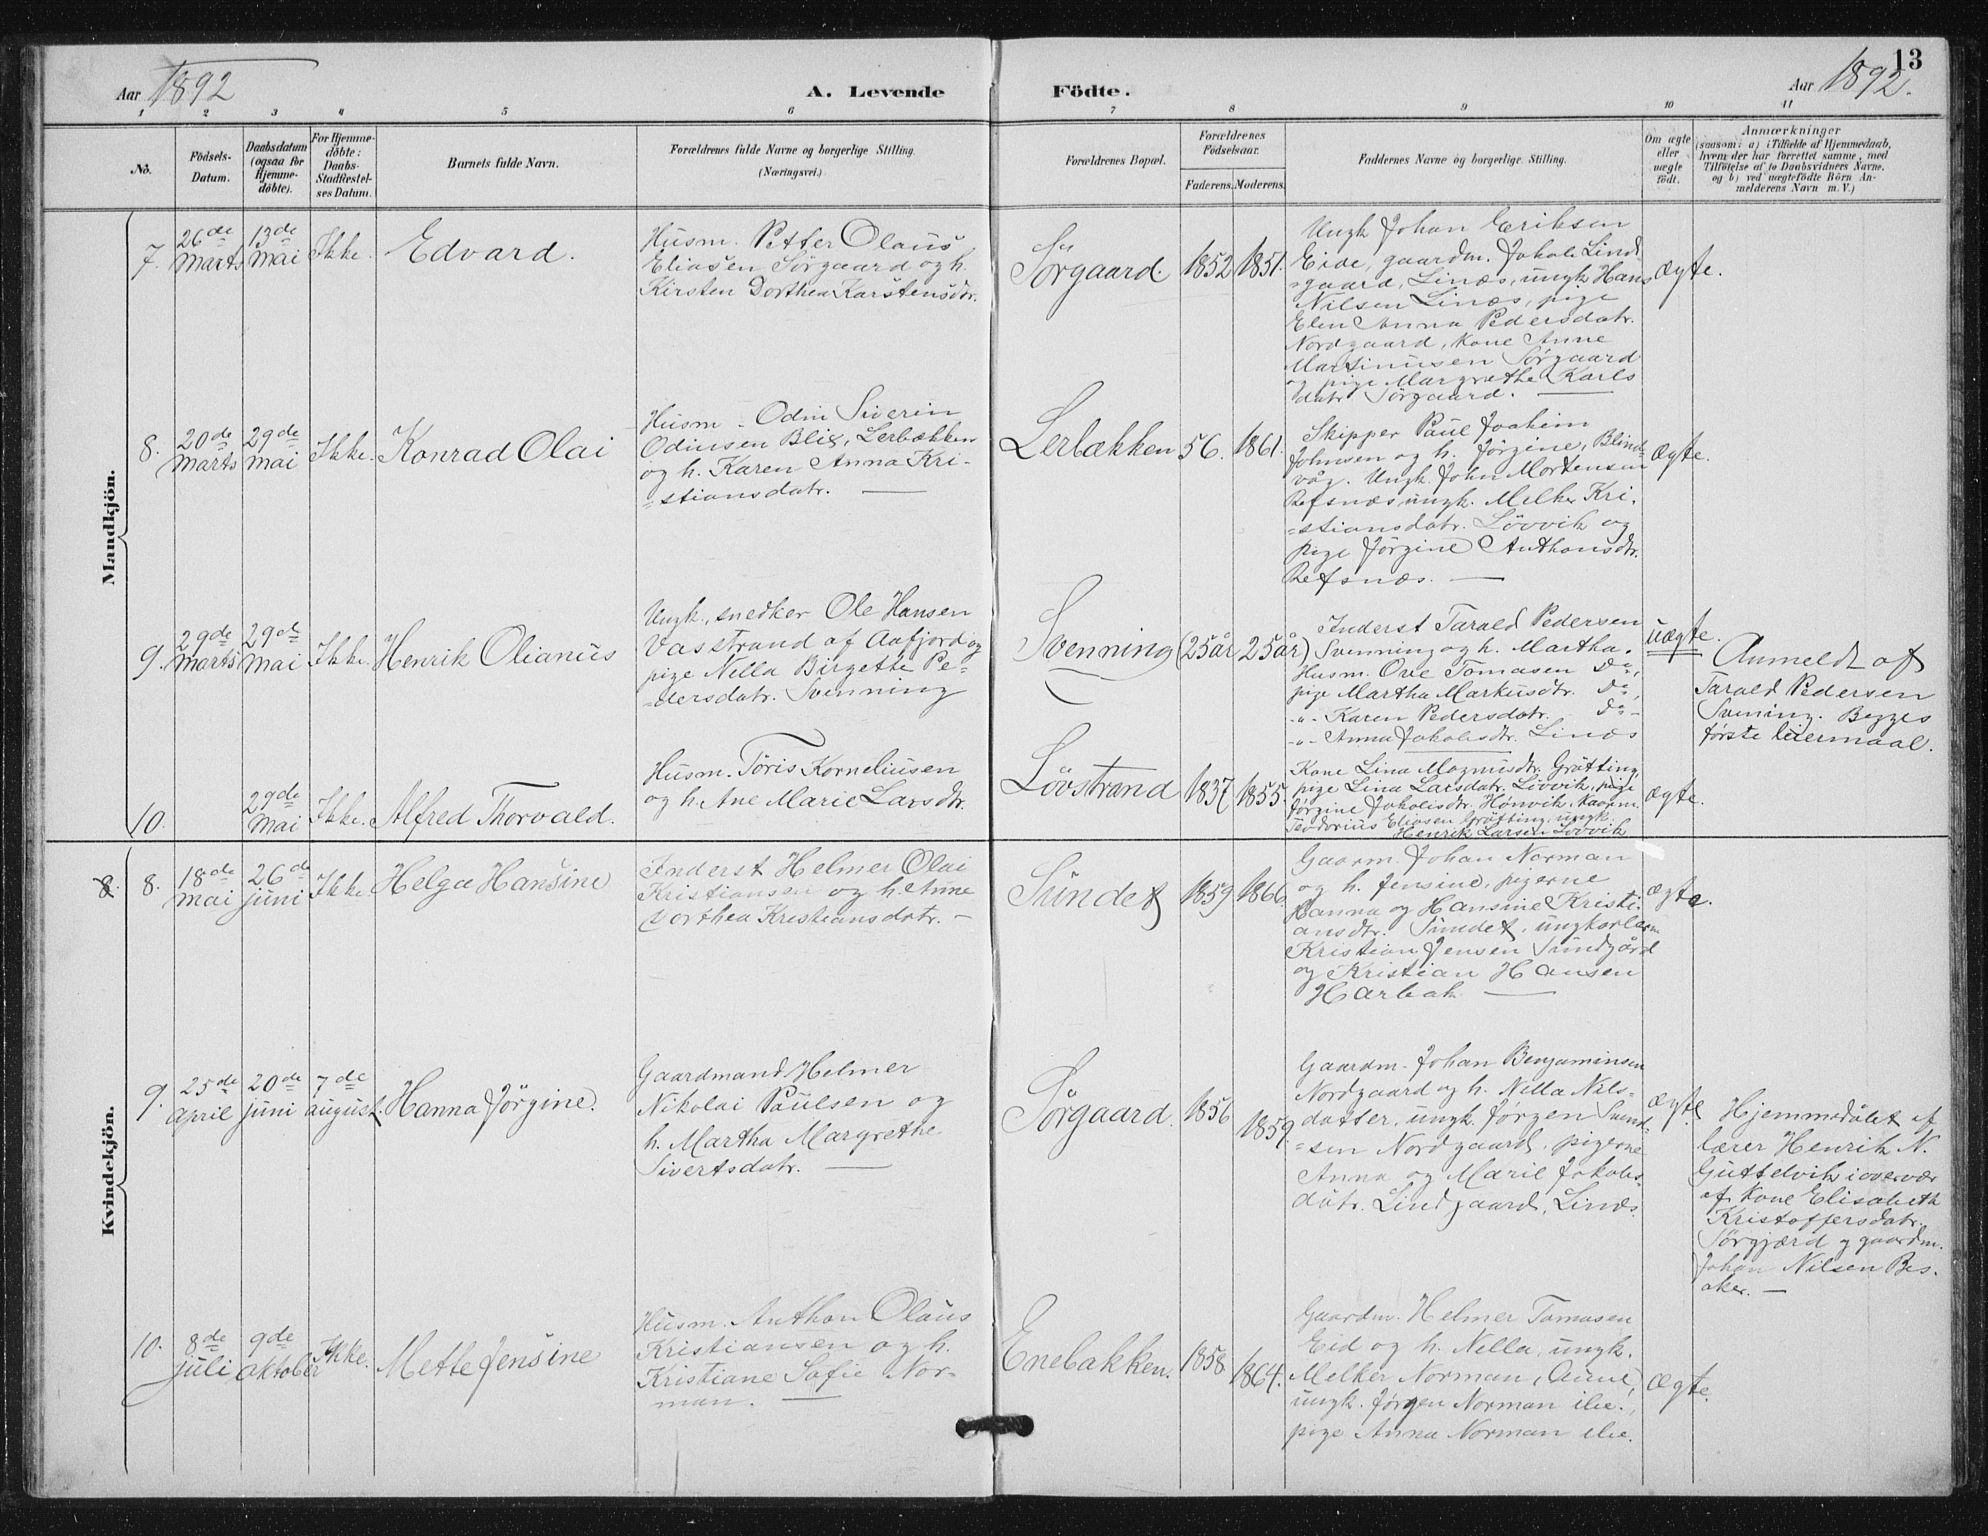 Aar 1892
A. Levende
Födte.
Aar 1892.
13
1 2 3 4 5 6 7 8 9 10 11
No.
Födsels-
Datum.
Daabsdatum
(ogsaa for
Hjemme-
döbte).
For Hjemme-
döbte:
Daabs-
Stadfæstel-
ses Datum.
Barnets fulde Navn.
Forældrenes fulde Navne og borgerlige Stilling.
(Næringsvei.)
Forældrenes Bopæl.
Forældrenes
Födselsaar.
Faderens. Moderens.
Faddernes Navne og borgerlige Stilling.
Om ægte
eller
uægte
födt.
Anmærkninger
(saasom: a) i Tilfælde af Hjemmedaab,
hvem der har forrettet samme, med
Tilföielse af to Daabsvidners Navne,
og b) ved uægtefödte Börn An-
melderens Navn m. V.)
Mandkjön.
7.
26de
Marts
13de
Mai
Ikke.
Edvard.
Husm. Petter Olaus
Eliasen Sörgaard og h.
Kirsten Dorthea Karstensdtr.
Sörgaard.
1852
1851.
Ungk Johan Eriksen
Eide, gaardm. Jakob Lind-
-gaard, Linæs, ungk Hans
Nilsen Linæs, pige
Elen Anna Pedersdatr.
Nordgaard, Kone Anne
Martinusen Sörgaard
og pige Margrethe Karls
datr Sörgaard.
ægte.
8.
20de
Marts
29de
Mai
Ikke.
Konrad Olai
Husm. Odin Siverin
Odinsen Blix, Lerbækken
og h. Karen Anna Kri-
=stiansdatr.
Lerbækken
56.
1861.
Skipper Paul Joakim
Johnsen og h. Jörgine, Blind-
våg. Ungk. John Mortensen
Refsnæs ungk. Melker Kri-
=stiansdatr. Lövvik og
pige Jörgine Anthonsdtr.
Refsnæs.
ægte.
9.
29de
Marts
29de
Mai
Ikke.
Henrik Olianus
Ungk., snedker Ole Hansen
Vasstrand af Aafjord og
pige Nella Birgette Pe-
-dersdatr. Svenning
Svenning
(25 år
25 år)
Inderst Tarald Pedersen
Svenning og h. Martha.
Husm. Ove Tomasen Do,
pige Martha Markusdtr. Do,
-"- Karen Pedersdatr. Do-
-"- Anna Jakobsdtr. Linæs
uægte.
Anmeldt af
Tarald Pedersen
Svening. Begges
første leiermaal.
10.
29de
Mai
Ikke.
Alfred Thorvald.
Husm. Töris Korneliusen
og h. Ane Marie Larsdtr.
Lövstrand
1837
1855.
Kone Lina Magnusdtr. Gråtting,
pige Lina Larsdatr. Lövvik, pige
Jörgine Jakobsdtr. Hönvik, Kaarm.
Teodorius Eliasen Gråtting, ungk.
Henrik Larsen Lövvik
ægte.
Kvindekjön.
8. 8.
18de
Mai
26de
juni
Ikke.
Helga Hansine
Inderst Helmer Olai
Kristiansen og h. Anne
Dorthea Kristiansdatr. -
Sundet
1859
1866
Gaarm. Johan Norman
og h. Jensine, pigerne
Hanna og Hansine Kristi-
ansdtr. Sundet, ungkarlerne
Kristian Jensen Sundgård
og Kristian Hansen
Harbak
ægte.
9.
25de
April
20de
juni
7de
august.
Hanna Jörgine.
Gaardmand Helmer
Nikolai Paulsen og
h. Martha Margrethe
Sivertsdatr.
Sörgaard.
1856
1859.
Gaardm. Johan Benjaminsen
Nordgaard og h. Nella Nils-
datter, ungk. Jörgen Svend-
=sen Nordgaard, pigerne
Anna og Marie Jakobs-
datr. Lindgaard, Linæs.
ægte.
Hjemmedöbt af
lærer Henrik N.
Guttelvik i overvær
af Kone Elisabeth
Kristoffersdatr.
Sörgjærd og gaardm.
Johan Nilsen Bes-
aker.
10.
8de
juli
9de
oktober
Ikke.
Mette Jensine
Husm. Anthon Olaus
Kristiansen og h.
Kristiane Sofie Nor-
man.
Enebakken.
1858
1864.
Gaardm. Helmer Tomasen
Eid og h. Nella, ungk.
Melker Norman,
ungk. Jörgen Norman ibe.,
pige Anna Norman ibe.
ægte.